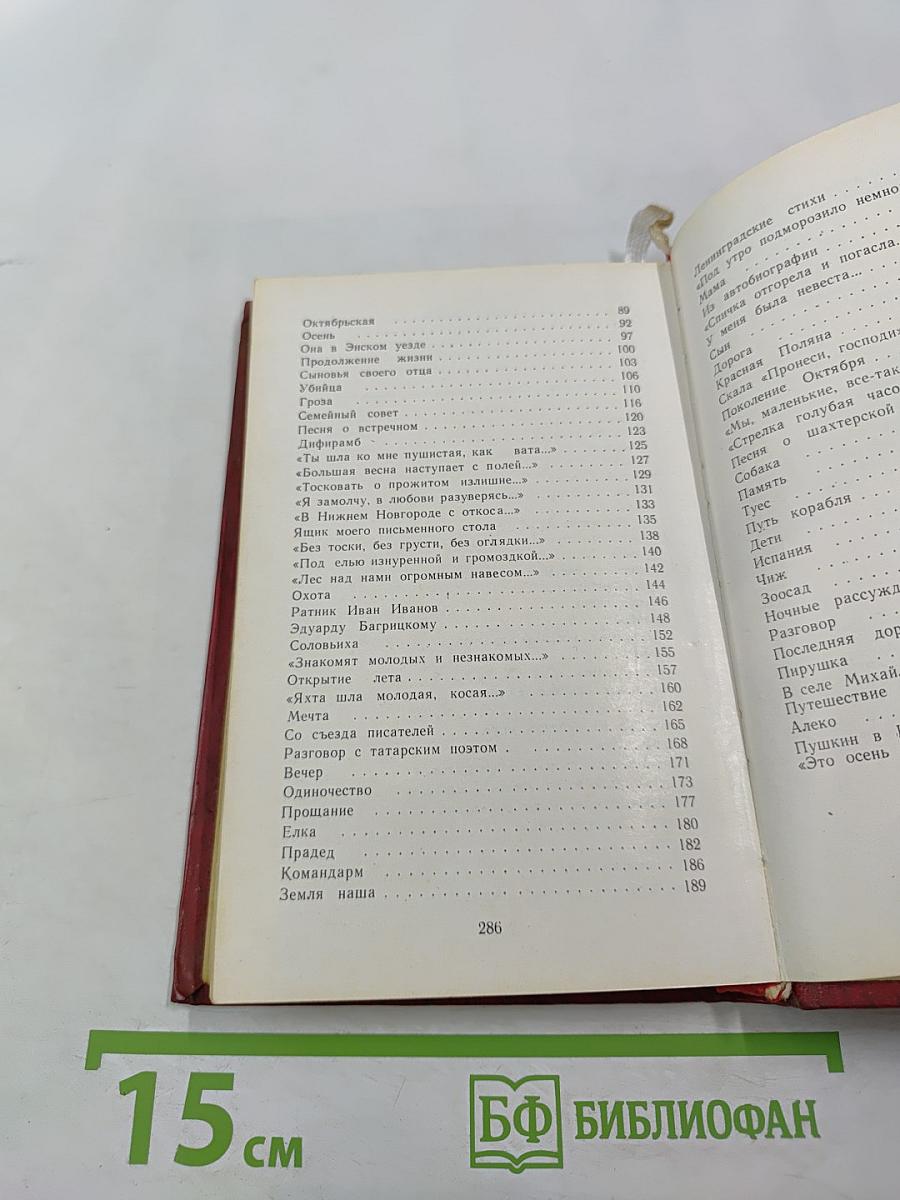 Октябрьская . . . . . . . . . . . . . . . . 89
Осень . . . . . . . . . . . . . . . . 92
Она в Энском уезде . . . . . . . . . . . . . . . . 97
Продолжение жизни . . . . . . . . . . . . . . . . 100
Сыновья своего отца . . . . . . . . . . . . . . . . 103
Убийца . . . . . . . . . . . . . . . . 106
Гроза . . . . . . . . . . . . . . . . 110
Семейный совет . . . . . . . . . . . . . . . . 116
Песня о встречном . . . . . . . . . . . . . . . . 120
Дифирамб . . . . . . . . . . . . . . . . 123
«Ты шла ко мне пушистая, как вата...» . . . . . . . . 125
«Большая весна наступает с полей...» . . . . . . . . 127
«Тосковать о прожитом излишне...» . . . . . . . . 129
«Я замолчу, в любови разуверясь...» . . . . . . . . 131
«В Нижнем Новгороде с откоса...» . . . . . . . . 133
Ящик моего письменного стола . . . . . . . . 135
«Без тоски, без грусти, без оглядки...» . . . . . . . . 138
«Под елью изнуренной и громоздкой...» . . . . . . . . 140
«Лес над нами огромным навесом...» . . . . . . . . 142
Охота . . . . . . . . . . . . . . . . 144
Ратник Иван Иванов . . . . . . . . . . . . . . . . 146
Эдуарду Багрицкому . . . . . . . . . . . . . . . . 148
Соловьиха . . . . . . . . . . . . . . . . 152
«Знакомят молодых и незнакомых...» . . . . . . . . 155
Открытие лета . . . . . . . . . . . . . . . . 157
«Яхта шла молодая, косая...» . . . . . . . . 160
Мечта . . . . . . . . . . . . . . . . 162
Со съезда писателей . . . . . . . . . . . . . . . . 165
Разговор с татарским поэтом . . . . . . . . 168
Вечер . . . . . . . . . . . . . . . . 171
Одиночество . . . . . . . . . . . . . . . . 173
Прощание . . . . . . . . . . . . . . . . 177
Елка . . . . . . . . . . . . . . . . 180
Прадед . . . . . . . . . . . . . . . . 182
Командарм . . . . . . . . . . . . . . . . 186
Земля наша . . . . . . . . . . . . . . . . 189
286
Ленинградские стихи . . . . .
«Под утро подморозило немно
Мама . . . . . . . .
Из автобиографии . . . . .
«Спичка отгорела и погасла.
У меня была невеста... . . .
Сын . . . . . . . .
Дорога . . . . . . . .
Красная Поляна . . . . .
Скала «Пронеси, господи
Поколение Октября . . .
«Мы, маленькие, все-так
«Стрелка голубая часо
Песня о шахтерской
Собака . . . . .
Память . . . . .
Туес . . . . .
Путь корабля . . .
Дети . . . . .
Испания . . . . .
Чиж . . . . .
Зоосад . . . . .
Ночные рассужд
Разговор . . .
Последняя дор
Пирушка . . .
В селе Михай
Путешествие
Алеко . . .
Пушкин в
«Это осень
15 см
БФ БИБЛИОФАН